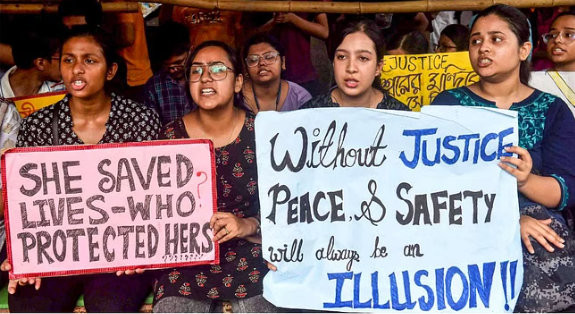 SHE SAVED
LIVES-WHO
PROTECTED HERS
?
Without JUSTICE
PEACE & SAFETY
will always be an
ILLUSION!!
JUSTICE